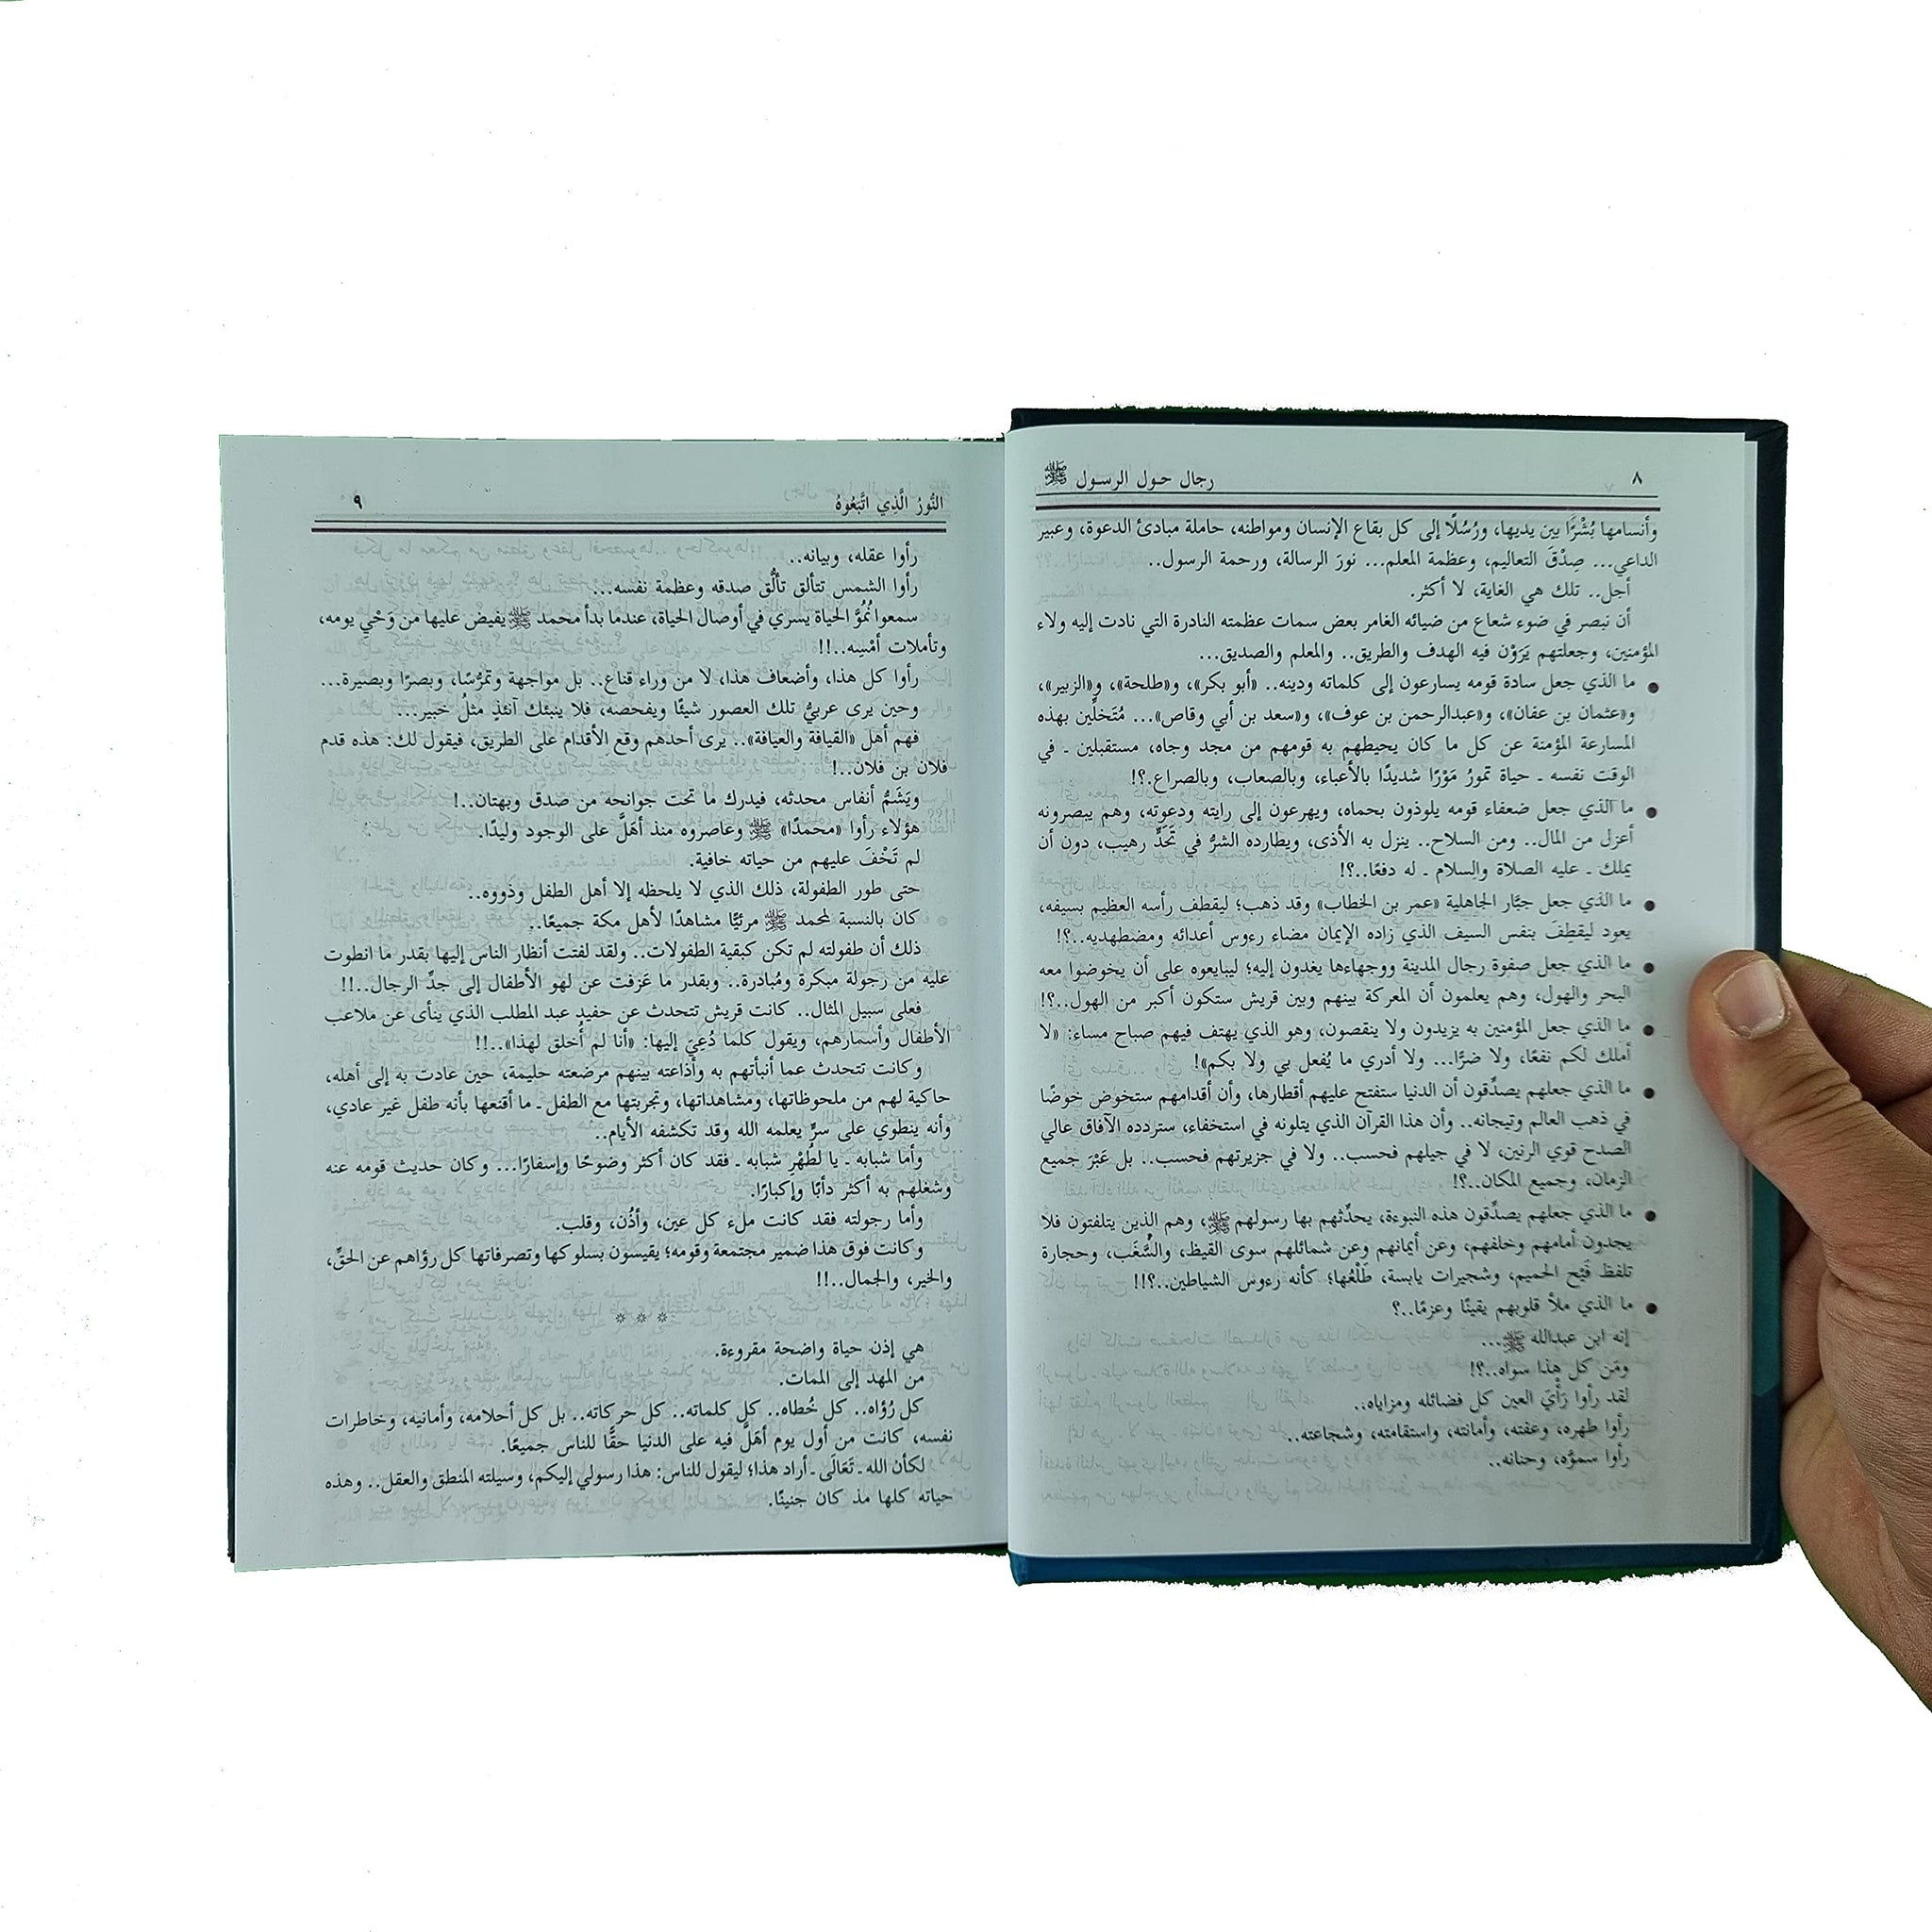 ٨ رجال حول الرسول ﷺ
وأنسامها بُشْرًا بين يديها، ورُسُلًا إلى كل بقاع الإنسان ومواطنه، حاملة مبادئ الدعوة، وعبير
الداعي... صِدْقَ التعاليم، وعظمة المعلم... نورَ الرسالة، ورحمة الرسول..
أجل.. تلك هي الغاية، لا أكثر.
أن نبصر في ضوء شعاع من ضيائه الغامر بعض سمات عظمته النادرة التي نادت إليه ولاء
المؤمنين، وجعلتهم يَرَوْن فيه الهدف والطريق.. والمعلم والصديق...
● ما الذي جعل سادة قومه يسارعون إلى كلماته ودينه.. «أبو بكر»، و«طلحة»، و«الزبير»،
و«عثمان بن عفان»، و«عبدالرحمن بن عوف»، و«سعد بن أبي وقاص»... مُتَخلِّين بهذه
المسارعة المؤمنة عن كل ما كان يحيطهم به قومهم من مجد وجاه، مستقبلين ـ في
الوقت نفسه ـ حياة تمورُ مَوْرًا شديدًا بالأعباء، وبالصعاب، وبالصراع.؟!
● ما الذي جعل ضعفاء قومه يلوذون بحماه، ويهرعون إلى رايته ودعوته، وهم يبصرونه
أعزل من المال.. ومن السلاح.. ينزل به الأذى، ويطارده الشرُّ في تَحَدٍّ رهيب، دون أن
يملك ـ عليه الصلاة والسلام ـ له دفعًا..؟!
● ما الذي جعل جبَّار الجاهلية «عمر بن الخطاب» وقد ذهب؛ ليقطف رأسه العظيم بسيفه،
يعود ليقطِفَ بنفس السيف الذي زاده الإيمان مضاء رءوس أعدائه ومضطهديه..؟!
● ما الذي جعل صفوة رجال المدينة ووجهاءها يغدون إليه؛ ليبايعوه على أن يخوضوا معه
البحر والهول، وهم يعلمون أن المعركة بينهم وبين قريش ستكون أكبر من الهول..؟!
● ما الذي جعل المؤمنين به يزيدون ولا ينقصون، وهو الذي يهتف فيهم صباح مساء: «لا
أملك لكم نفعًا، ولا ضرًّا... ولا أدري ما يُفعل بي ولا بكم»!
● ما الذي جعلهم يصدِّقون أن الدنيا ستفتح عليهم أقطارها، وأن أقدامهم ستخوض خَوضًا
في ذهب العالم وتيجانه.. وأن هذا القرآن الذي يتلونه في استخفاء، ستردده الآفاق عالي
الصدح قوي الرنين، لا في جيلهم فحسب.. ولا في جزيرتهم فحسب.. بل عَبْرَ جميع
الزمان، وجميع المكان..؟!
● ما الذي جعلهم يصدِّقون هذه النبوءة، يحدِّثهم بها رسولهم ﷺ، وهم الذين يتلفتون فلا
يجدون أمامهم وخلفهم، وعن أيمانهم وعن شمائلهم سوى القيظ، والسَّغَب، وحجارة
تلفظ فَيْح الحميم، وشجيرات يابسة، طَلْعُها؛ كأنه رءوس الشياطين..؟!!
● ما الذي ملأ قلوبهم يقينًا وعزمًا..؟
إنه ابن عبدالله ﷺ...
ومَن كل هذا سواه..؟!
لقد رأوا رَأْيَ العين كل فضائله ومزاياه..
رأوا طهره، وعفته، وأمانته، واستقامته، وشجاعته..
رأوا سموَّه، وحنانه..
النُّورُ الَّذِي اتَّبَعُوهُ ٩
رأوا عقله، وبيانه..
رأوا الشمس تتألق تألُّق صدقه وعظمة نفسه...
سمعوا نُمُوَّ الحياة يسري في أوصال الحياة، عندما بدأ محمد ﷺ يفيض عليها من وَحْي يومه،
وتأملات أمْسِه..!!
رأوا كل هذا، وأضعاف هذا، لا من وراء قناع.. بل مواجهة وتمرُّسًا، وبصرًا وبصيرة...
وحين يرى عربيُّ تلك العصور شيئًا ويفحصه، فلا ينبئك آنئذٍ مثلُ خبير...
فهم أهل «القيافة والعيافة».. يرى أحدهم وقع الأقدام على الطريق، فيقول لك: هذه قدم
فلان بن فلان..!
ويَشَمُّ أنفاس محدثه، فيدرك ما تحت جوانحه من صدق وبهتان..!
هؤلاء رأوا «محمدًا» ﷺ وعاصروه منذ أهَلَّ على الوجود وليدًا.
لم تَخْفَ عليهم من حياته خافية.
حتى طور الطفولة، ذلك الذي لا يلحظه إلا أهل الطفل وذووه..
كان بالنسبة لمحمد ﷺ مرئيًّا مشاهدًا لأهل مكة جميعًا..
ذلك أن طفولته لم تكن كبقية الطفولات.. ولقد لفتت أنظار الناس إليها بقدر ما انطوت
عليه من رجولة مبكرة ومُبادرة.. وبقدر ما عَزفت عن لهو الأطفال إلى جدِّ الرجال..!!
فعلى سبيل المثال.. كانت قريش تتحدث عن حفيد عبد المطلب الذي ينأى عن ملاعب
الأطفال وأسمارهم، ويقول كلما دُعِيَ إليها: «أنا لم أُخلق لهذا»..!!
وكانت تتحدث عما أنبأتهم به وأذاعته بينهم مرضعته حليمة، حين عادت به إلى أهله،
حاكية لهم من ملحوظاتها، ومشاهداتها، وتجربتها مع الطفل ـ ما أقنعها بأنه طفل غير عادي،
وأنه ينطوي على سرٍّ يعلمه الله وقد تكشفه الأيام..
وأما شبابه ـ يا لطُهْرِ شبابه ـ فقد كان أكثر وضوحًا وإسفارًا... وكان حديث قومه عنه
وشغلهم به أكثر دأبًا وإكبارًا.
وأما رجولته فقد كانت ملء كل عين، وأذُن، وقلب.
وكانت فوق هذا ضمير مجتمعة وقومه؛ يقيسون بسلوكها وتصرفاتها كل رؤاهم عن الحقِّ،
والخير، والجمال..!!
* * *
هي إذن حياة واضحة مقروءة.
من المهد إلى الممات.
كل رُؤاه.. كل خُطاه.. كل كلماته.. كل حركاته.. بل كل أحلامه، وأمانيه، وخاطرات
نفسه، كانت من أول يوم أهَلَّ فيه على الدنيا حقًّا للناس جميعًا.
لكأن الله ـ تَعَالَى ـ أراد هذا؛ ليقول للناس: هذا رسولي إليكم، وسيلته المنطق والعقل.. وهذه
حياته كلها مذ كان جنينًا.